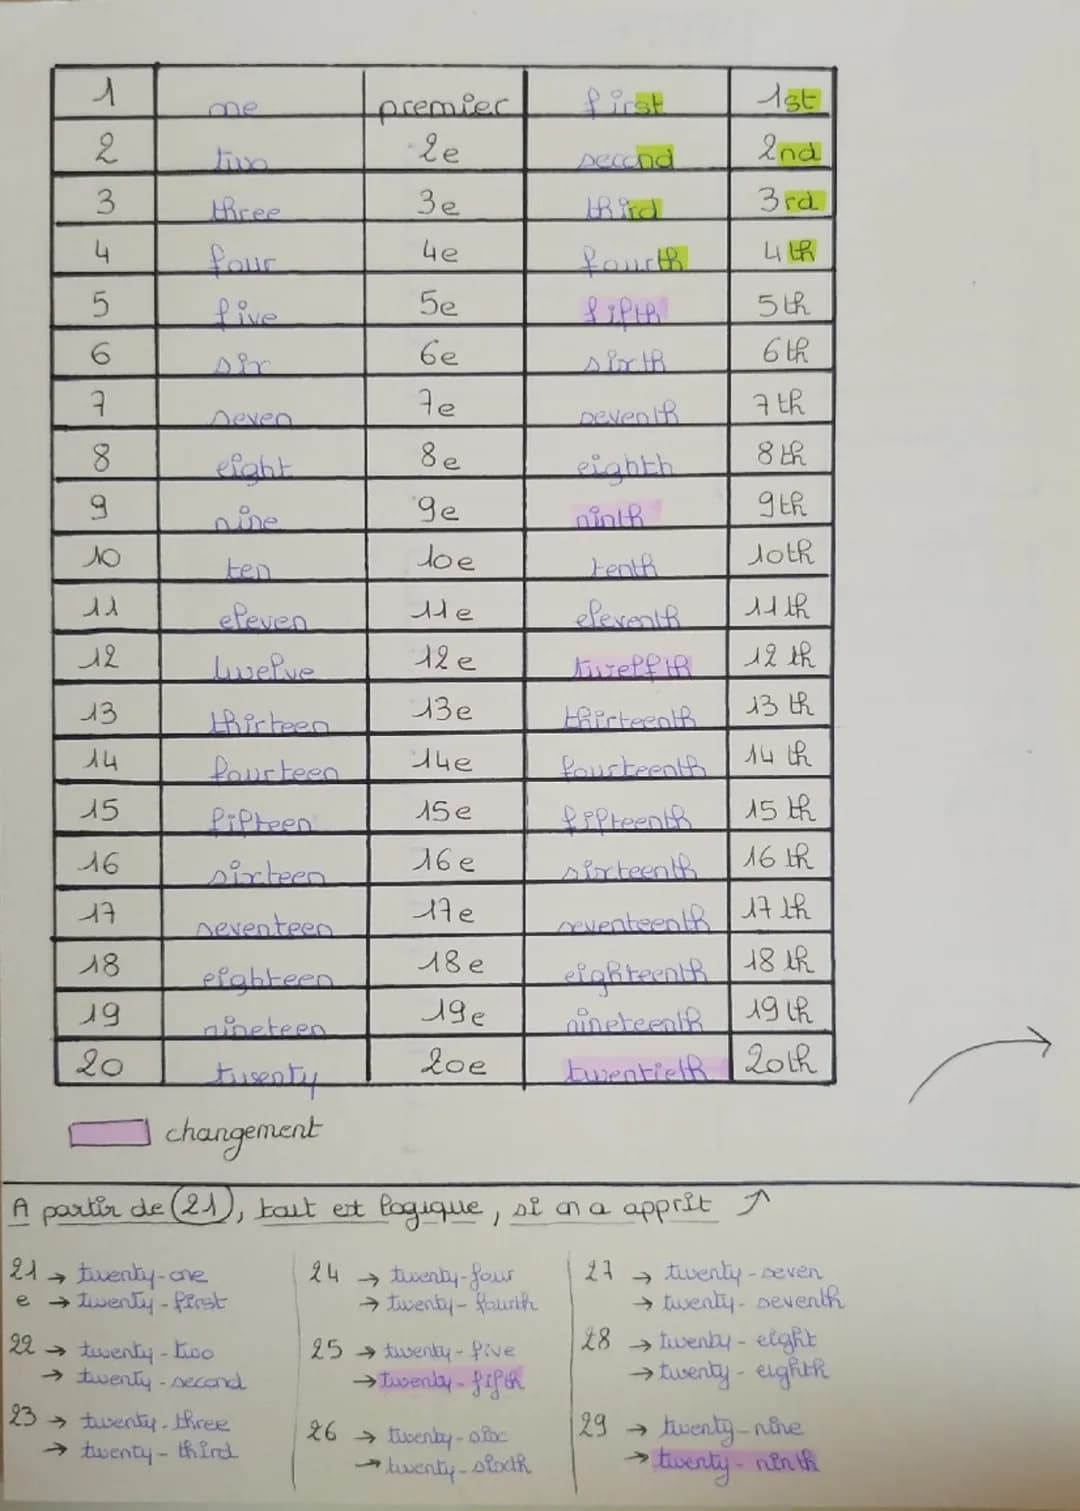 1 one premier first 1st
2 two 2e second 2nd
3 three 3e third 3rd
4 four 4e fourth 4th
5 five 5e fifth 5th
6 six 6e sixth 6th
7 seven 7e seventh 7th
8 eight 8e eighth 8th
9 nine 9e ninth 9th
10 ten 10e tenth 10th
11 eleven 11e eleventh 11th
12 twelve 12e twelfth 12th
13 thirteen 13e thirteenth 13th
14 fourteen 14e fourteenth 14th
15 fifteen 15e fifteenth 15th
16 sixteen 16e sixteenth 16th
17 seventeen 17e seventeenth 17th
18 eighteen 18e eighteenth 18th
19 nineteen 19e nineteenth 19th
20 twenty 20e twentieth 20th
changement
A partir de 21, tout est logique, si on a apprit ↑
21 → twenty-one
e → twenty-first
22 → twenty-two
→ twenty-second
23 → twenty-three
→ twenty-third
24 → twenty-four
→ twenty-fourth
25 → twenty-five
→ twenty-fifth
26 → twenty-six
→ twenty-sixth
27 → twenty-seven
→ twenty-seventh
28 → twenty-eight
→ twenty-eighth
29 → twenty-nine
→ twenty-ninth